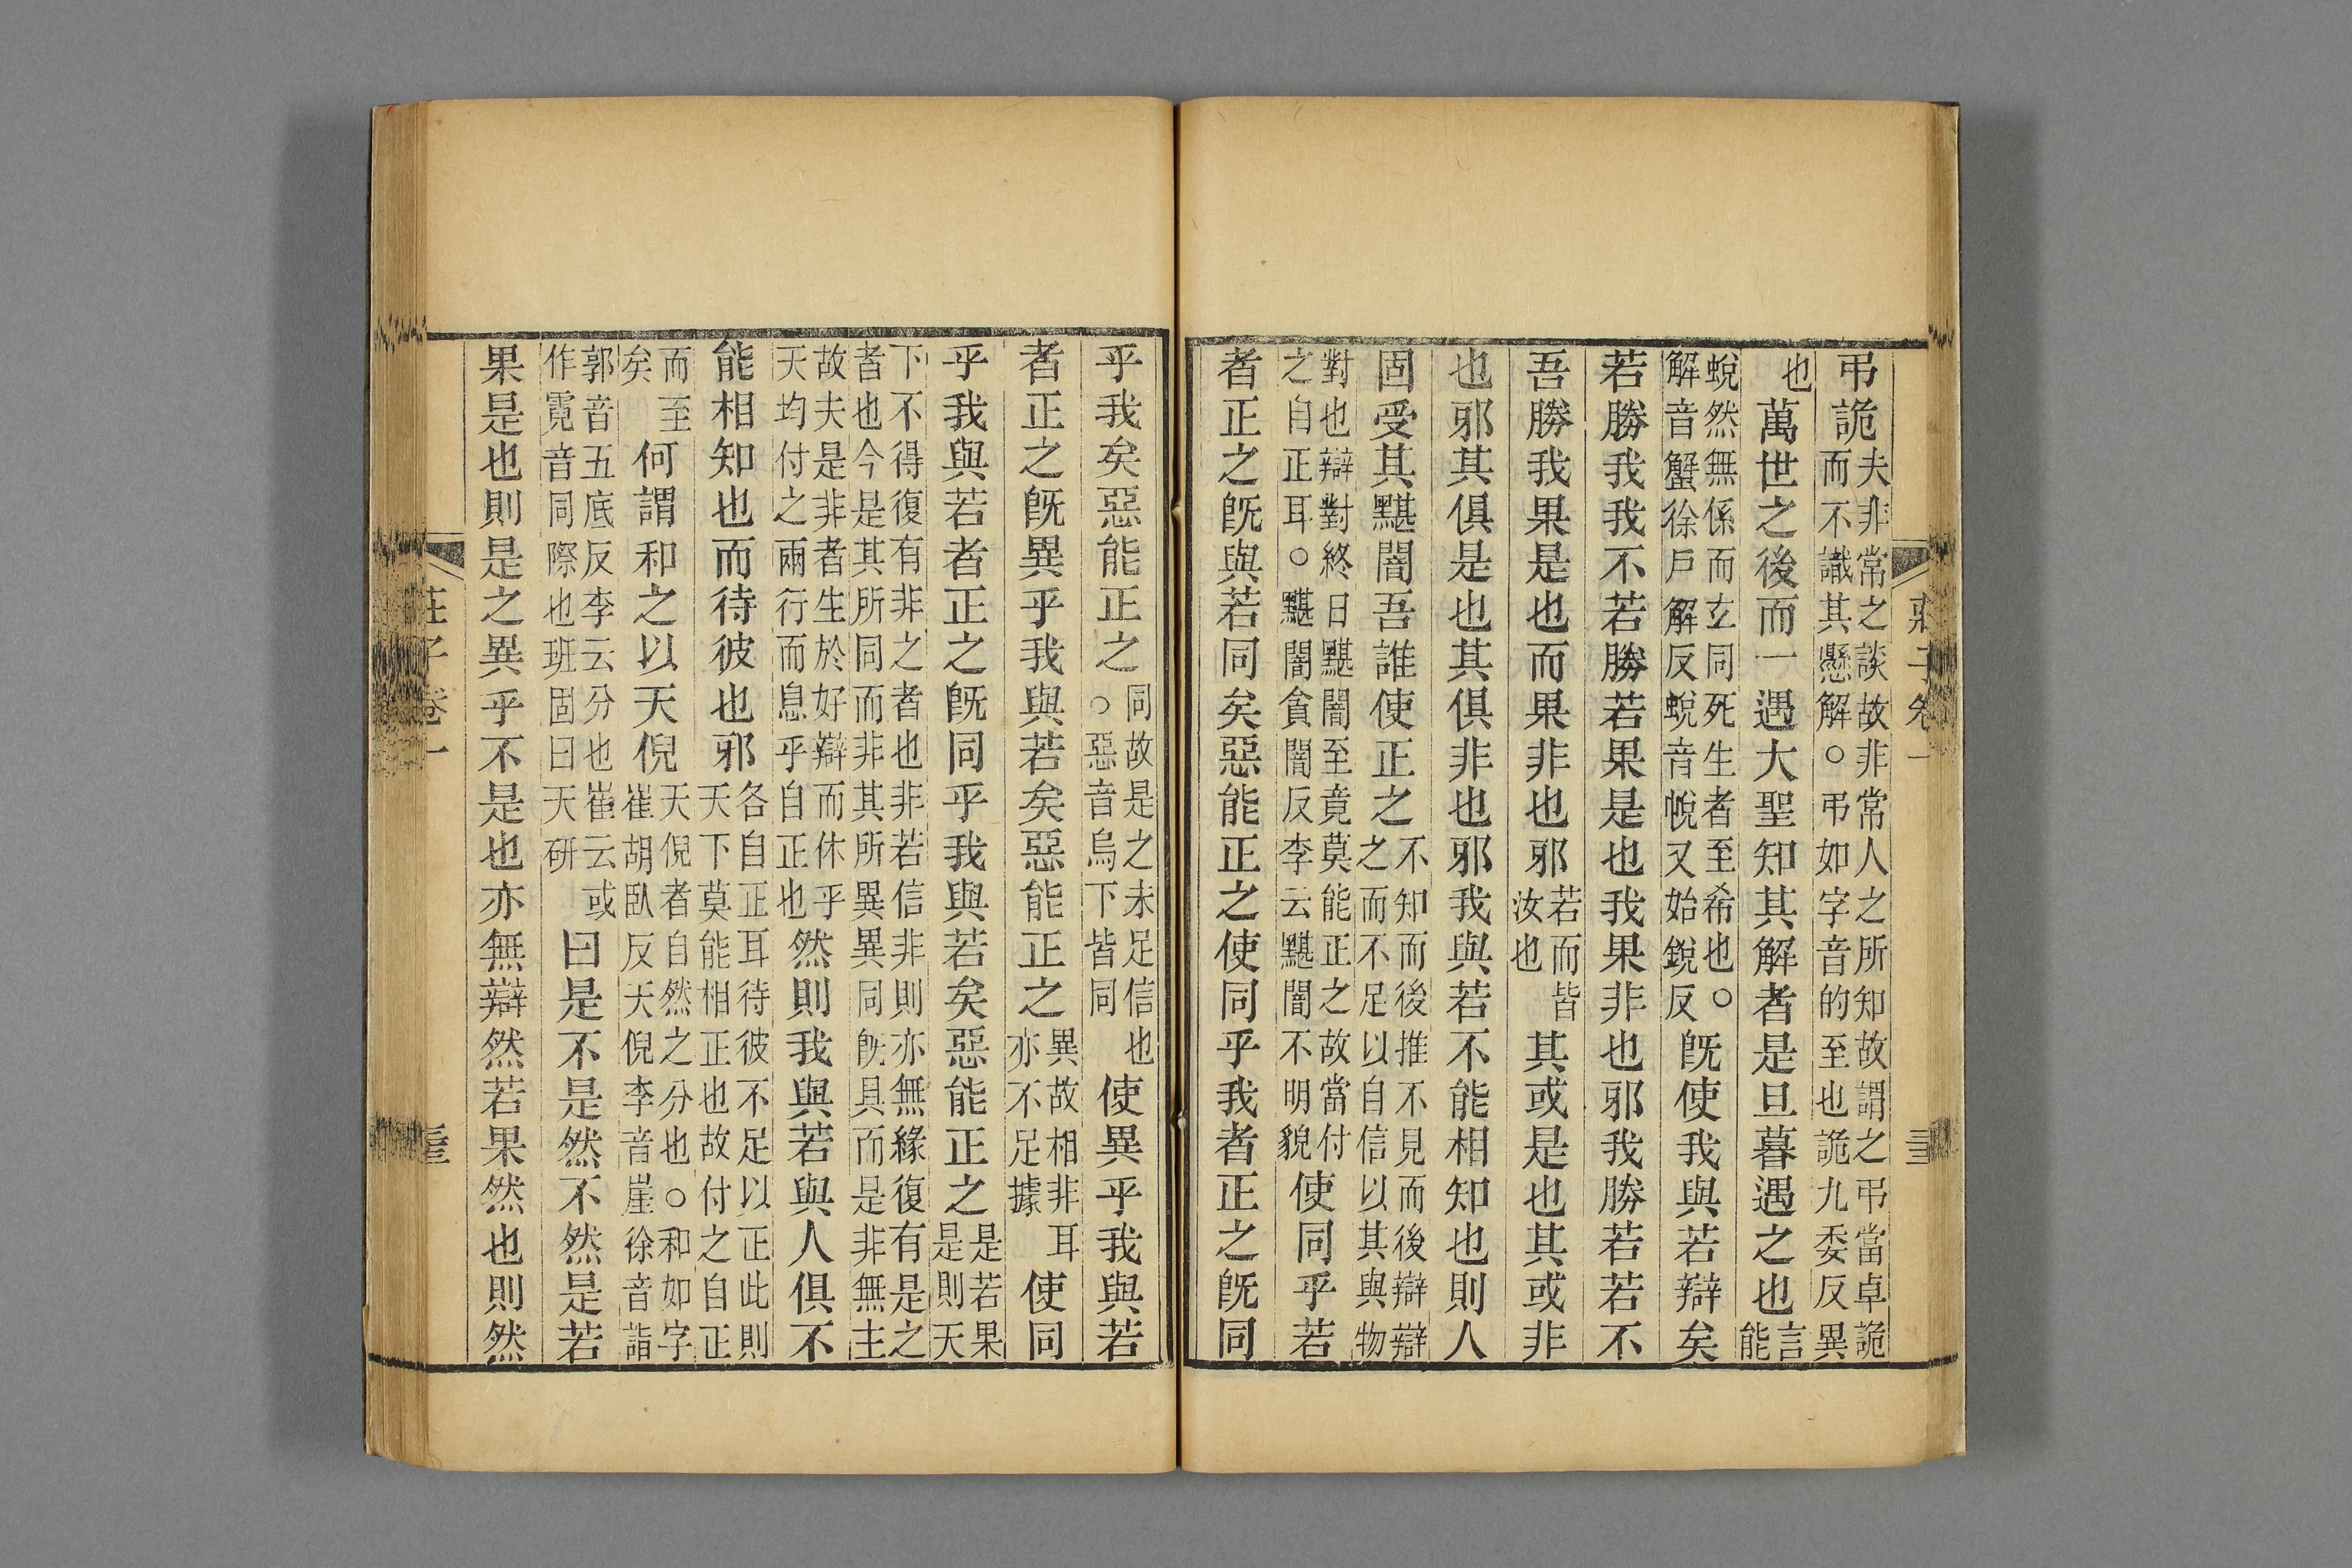 弔詭夫非常之談故非常人之所知故謂之弔當卓詭而不識其懸解○弔如字音的至也詭九委反異
也萬世之後而一遇大聖知其解者是旦暮遇之也言能
蛻然無係而玄同死生者至希也○解音蟹徐戶解反蛻音帨又始銳反旣使我與若辯矣
若勝我我不若勝若果是也我果非也邪我勝若若不
吾勝我果是也而果非也邪若而皆汝也其或是也其或非
也邪其俱是也其俱非也邪我與若不能相知也則人
固受其黮闇吾誰使正之不知而後推不見而後辯辯之而不足以自信以其與物
對也辯對終日黮闇至竟莫能正之故當付之自正耳○黮闇貪闇反李云黮闇不明貌使同乎若
者正之旣與若同矣惡能正之使同乎我者正之旣同
乎我矣惡能正之同故是之未足信也○惡音烏下皆同使異乎我與若
者正之旣異乎我與若矣惡能正之異故相非耳亦不足據使同
乎我與若者正之旣同乎我與若矣惡能正之是若果是則天
下不得復有非之者也非若信非則亦無緣復有是之者也今是其所同而非其所異異同旣具而是非無主
故夫是非者生於好辯而休乎天均付之兩行而息乎自正也然則我與若與人俱不
能相知也而待彼也邪各自正耳待彼不足以正此則天下莫能相正也故付之自正
而至矣何謂和之以天倪天倪者自然之分也○和如字崔胡臥反天倪李音崖徐音詣
郭音五底反李云分也崔云或作霓音同際也班固曰天研曰是不是然不然是若
果是也則是之異乎不是也亦無辯然若果然也則然
莊子卷一